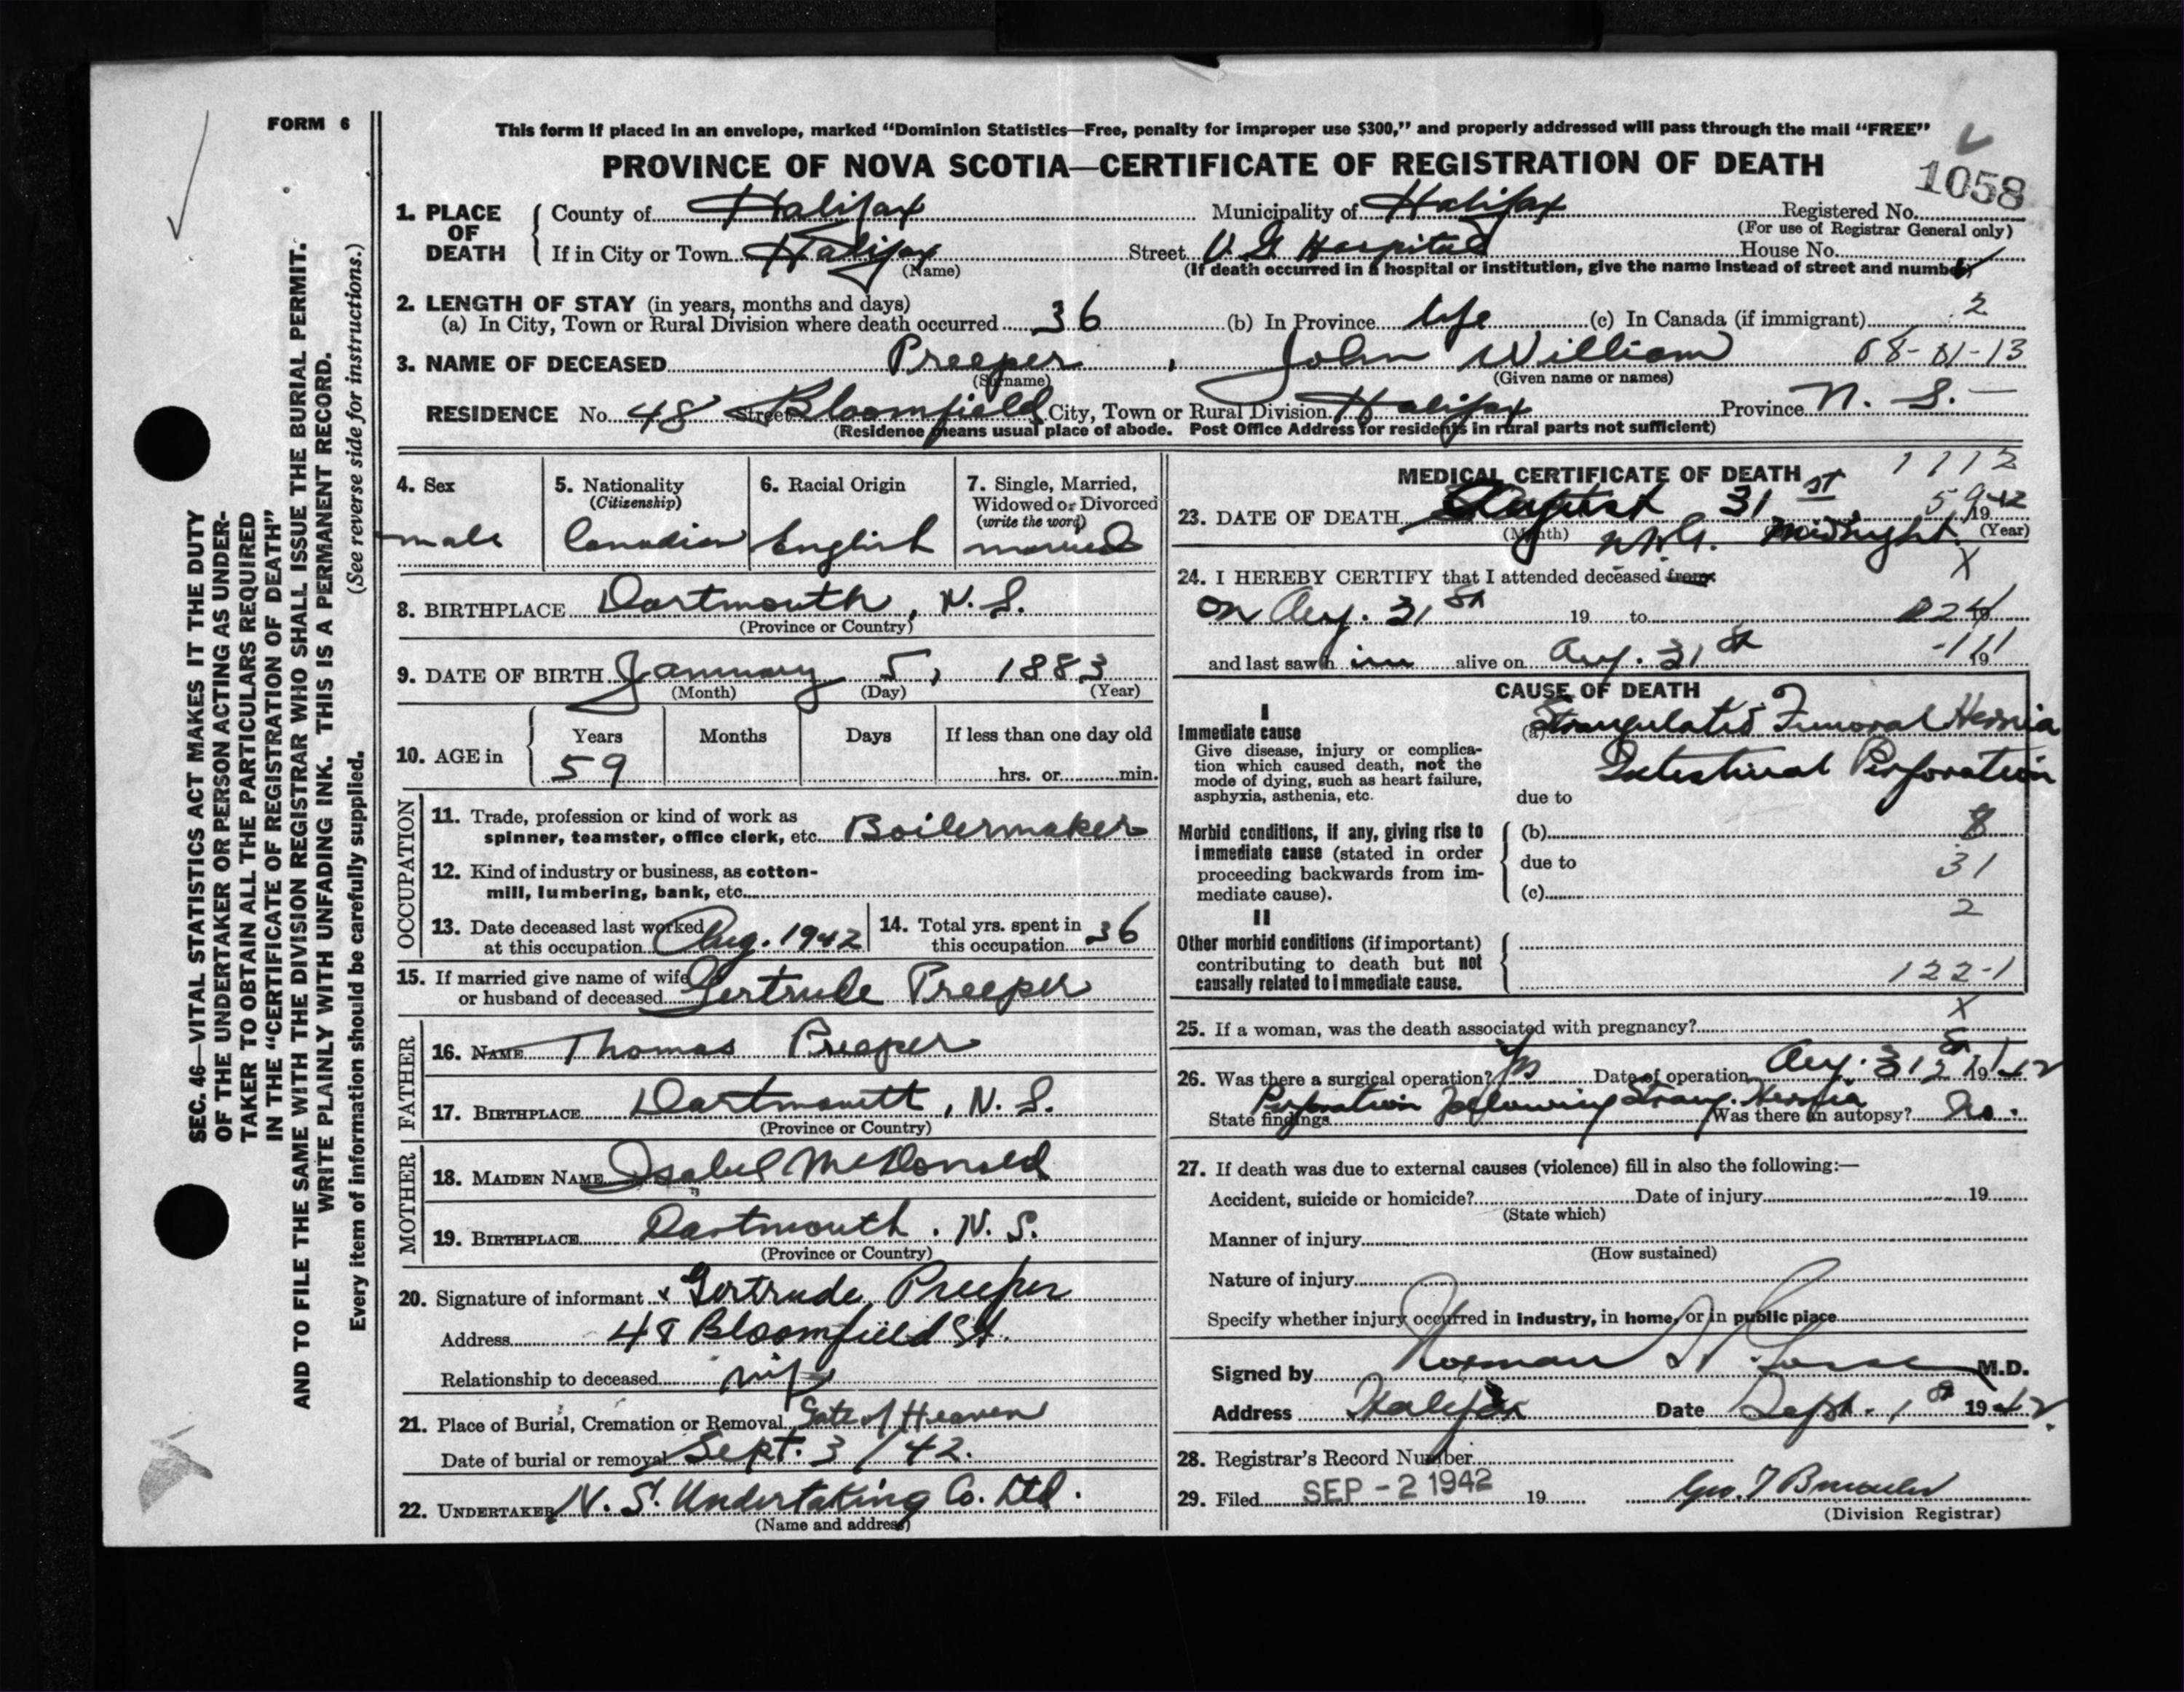 FORM 6
This form if placed in an envelope, marked “Dominion Statistics—Free, penalty for improper use $300,” and properly addressed will pass through the mail “FREE”
PROVINCE OF NOVA SCOTIA—CERTIFICATE OF REGISTRATION OF DEATH
1058
1. PLACE OF DEATH County of Halifax Municipality of Halifax Registered No.
(For use of Registrar General only)
If in City or Town Halifax Street V. G. Hospital House No.
(Name) (If death occurred in a hospital or institution, give the name instead of street and number)
2. LENGTH OF STAY (in years, months and days)
(a) In City, Town or Rural Division where death occurred 36 (b) In Province life (c) In Canada (if immigrant) 2
3. NAME OF DECEASED Preeper, John William 08-01-13
(Surname) (Given name or names)
RESIDENCE No. 48 Street Bloomfield City, Town or Rural Division Halifax Province N. S. —
(Residence means usual place of abode. Post Office Address for residents in rural parts not sufficient)
4. Sex
male
5. Nationality
(Citizenship)
Canadian
6. Racial Origin
English
7. Single, Married,
Widowed or Divorced
(write the word)
married
8. BIRTHPLACE Dartmouth, N. S.
(Province or Country)
9. DATE OF BIRTH January 5, 1883
(Month) (Day) (Year)
10. AGE in Years Months Days If less than one day old
59 hrs. or min.
OCCUPATION
11. Trade, profession or kind of work as
spinner, teamster, office clerk, etc. Boilermaker
12. Kind of industry or business, as cotton-
mill, lumbering, bank, etc.
13. Date deceased last worked
at this occupation Aug. 1942
14. Total yrs. spent in
this occupation 36
15. If married give name of wife
or husband of deceased Gertrude Preeper
FATHER
16. NAME Thomas Preeper
17. BIRTHPLACE Dartmouth, N. S.
(Province or Country)
MOTHER
18. MAIDEN NAME Isabel McDonald
19. BIRTHPLACE Dartmouth. N. S.
(Province or Country)
20. Signature of informant x Gertrude Preeper
Address 48 Bloomfield St.
Relationship to deceased wife
21. Place of Burial, Cremation or Removal Gate of Heaven
Date of burial or removal Sept. 3/42.
22. UNDERTAKER N. S. Undertaking Co. Ltd.
(Name and address)
MEDICAL CERTIFICATE OF DEATH 1112
23. DATE OF DEATH August 31st 1942
59
(Month) (Year)
Midnight.
24. I HEREBY CERTIFY that I attended deceased from X
on Aug. 31st 19 to 19
and last saw him alive on Aug. 31st 19
CAUSE OF DEATH
I
Immediate cause
Give disease, injury or complica-
tion which caused death, not the
mode of dying, such as heart failure,
asphyxia, asthenia, etc.
(a) Strangulated Femoral Hernia
Intestinal Perforation
due to
Morbid conditions, if any, giving rise to
immediate cause (stated in order
proceeding backwards from im-
mediate cause).
(b) 8
due to 31
(c) 2
II
Other morbid conditions (if important)
contributing to death but not
causally related to immediate cause.
122-1
25. If a woman, was the death associated with pregnancy? X
26. Was there a surgical operation? Yes Date of operation Aug. 31st 1942
State findings Perforation following Strang. Hernia Was there an autopsy? No.
27. If death was due to external causes (violence) fill in also the following:—
Accident, suicide or homicide? Date of injury 19
(State which)
Manner of injury
(How sustained)
Nature of injury
Specify whether injury occurred in industry, in home, or in public place
Signed by Norman H. Gosse M.D.
Address Halifax Date Sept. 1st 1942.
28. Registrar's Record Number
29. Filed SEP - 2 1942 19
(Division Registrar)
SEC. 46—VITAL STATISTICS ACT MAKES IT THE DUTY
OF THE UNDERTAKER OR PERSON ACTING AS UNDER-
TAKER TO OBTAIN ALL THE PARTICULARS REQUIRED
IN THE “CERTIFICATE OF REGISTRATION OF DEATH”
AND TO FILE THE SAME WITH THE DIVISION REGISTRAR WHO SHALL ISSUE THE BURIAL PERMIT.
WRITE PLAINLY WITH UNFADING INK. THIS IS A PERMANENT RECORD.
Every item of information should be carefully supplied. (See reverse side for instructions.)